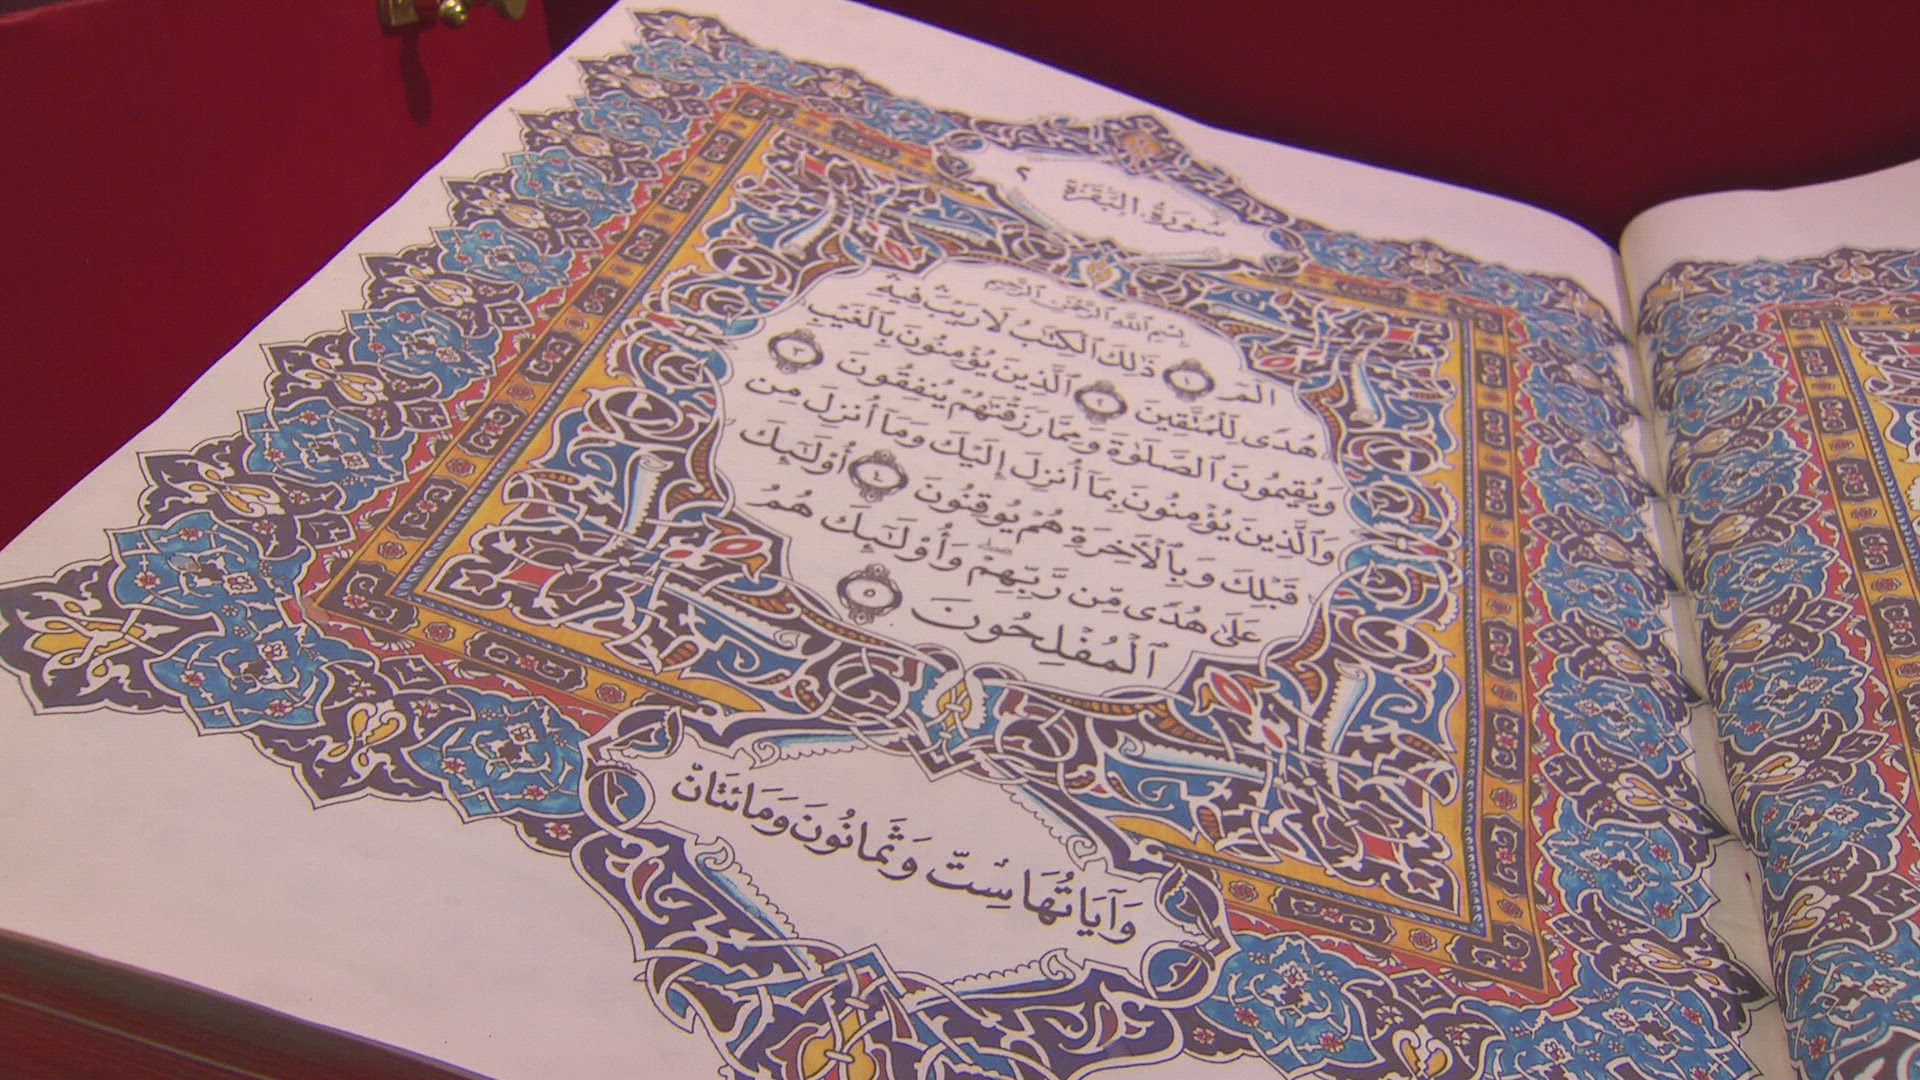 سُورَةُ البَقَرَة ٢
بِسْمِ ٱللَّهِ ٱلرَّحْمَٰنِ ٱلرَّحِيمِ
الٓمٓ ١ ذَٰلِكَ ٱلْكِتَٰبُ لَا رَيْبَ فِيهِ
هُدًى لِّلْمُتَّقِينَ ٢ ٱلَّذِينَ يُؤْمِنُونَ بِٱلْغَيْبِ
وَيُقِيمُونَ ٱلصَّلَوٰةَ وَمِمَّا رَزَقْنَٰهُمْ يُنفِقُونَ ٣
وَٱلَّذِينَ يُؤْمِنُونَ بِمَآ أُنزِلَ إِلَيْكَ وَمَآ أُنزِلَ مِن
قَبْلِكَ وَبِٱلْأَخِرَةِ هُمْ يُوقِنُونَ ٤ أُوْلَٰٓئِكَ
عَلَىٰ هُدًى مِّن رَّبِّهِمْ وَأُوْلَٰٓئِكَ هُمُ
ٱلْمُفْلِحُونَ ٥
وَآيَاتُهَا سِتٌّ وَثَمَانُونَ وَمَائَتَانْ